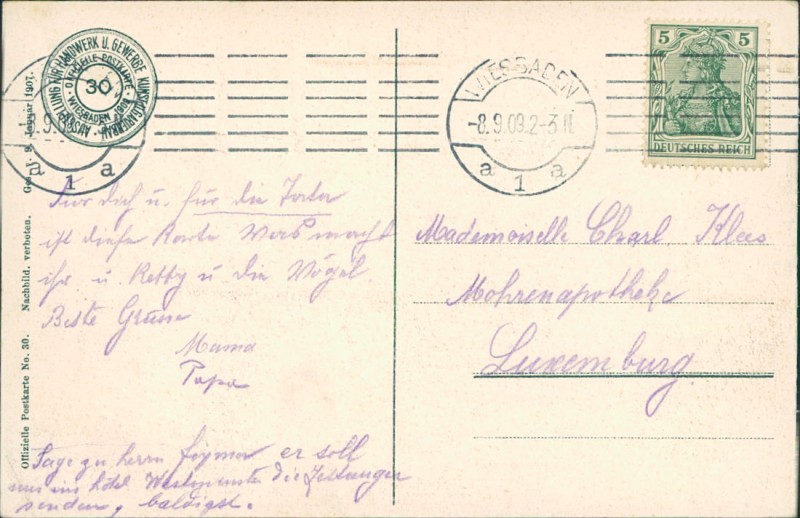 AUSSTELLUNG FÜR HANDWERK U. GEWERBE KUNST
OFFIZIELLE POSTKARTE
30
WIESBADEN 1909
WIESBADEN
-8.9.09.2-3 N
a 1 a
a 1 a
5 5
DEUTSCHES REICH
Offizielle Postkarte No. 30. Nachbild. verboten. Januar 1907.
Für dich u. für die
ist diese Karte Was macht
ihr u Ketty u die Vögel.
Beste Grüsse
Mama
Papa
Sage zu herrn er soll
uns ins hôtel Westminster die Zeitungen
senden, baldigst.
Mademoiselle Charl Klees
Mohrenapotheke
Luxemburg